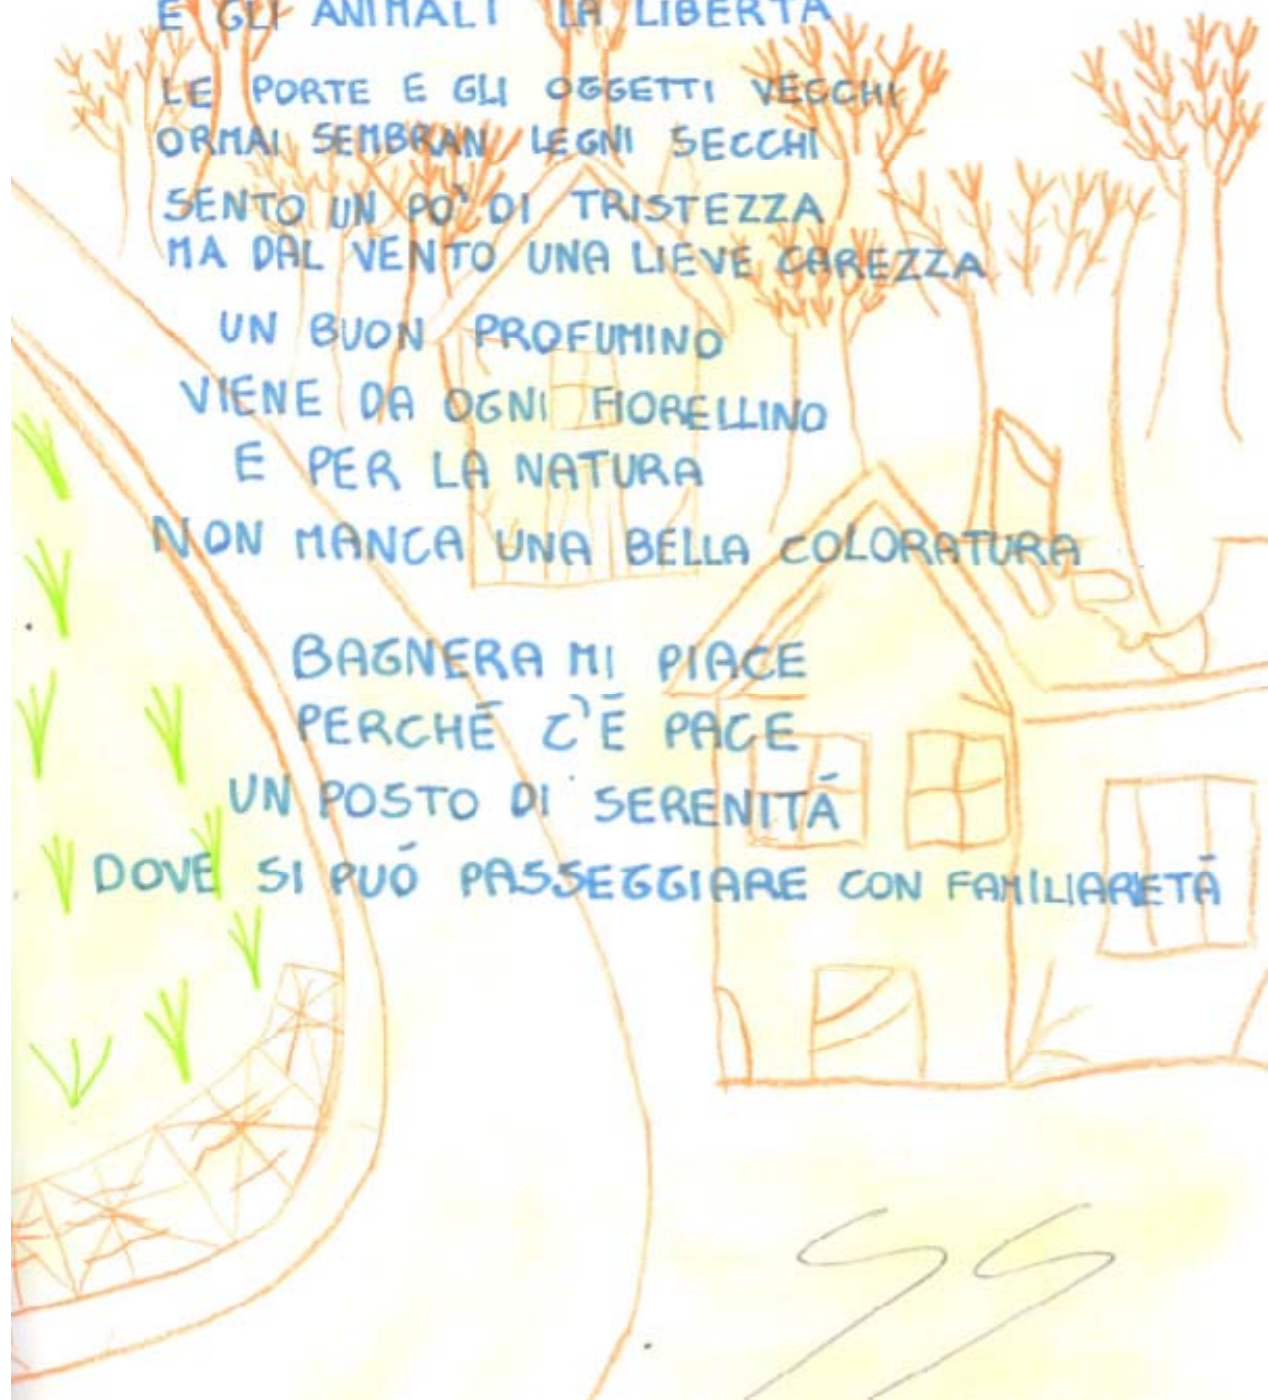 E GLI ANIMALI LA LIBERTÀ
LE PORTE E GLI OGGETTI VECCHI
ORMAI SEMBRAN LEGNI SECCHI
SENTO UN PO' DI TRISTEZZA
MA DAL VENTO UNA LIEVE CAREZZA
UN BUON PROFUMINO
VIENE DA OGNI FIORELLINO
E PER LA NATURA
NON MANCA UNA BELLA COLORATURA
BAGNERA MI PIACE
PERCHÉ C'È PACE
UN POSTO DI SERENITÁ
DOVE SI PUÓ PASSEGGIARE CON FAMILIARETÁ
SS